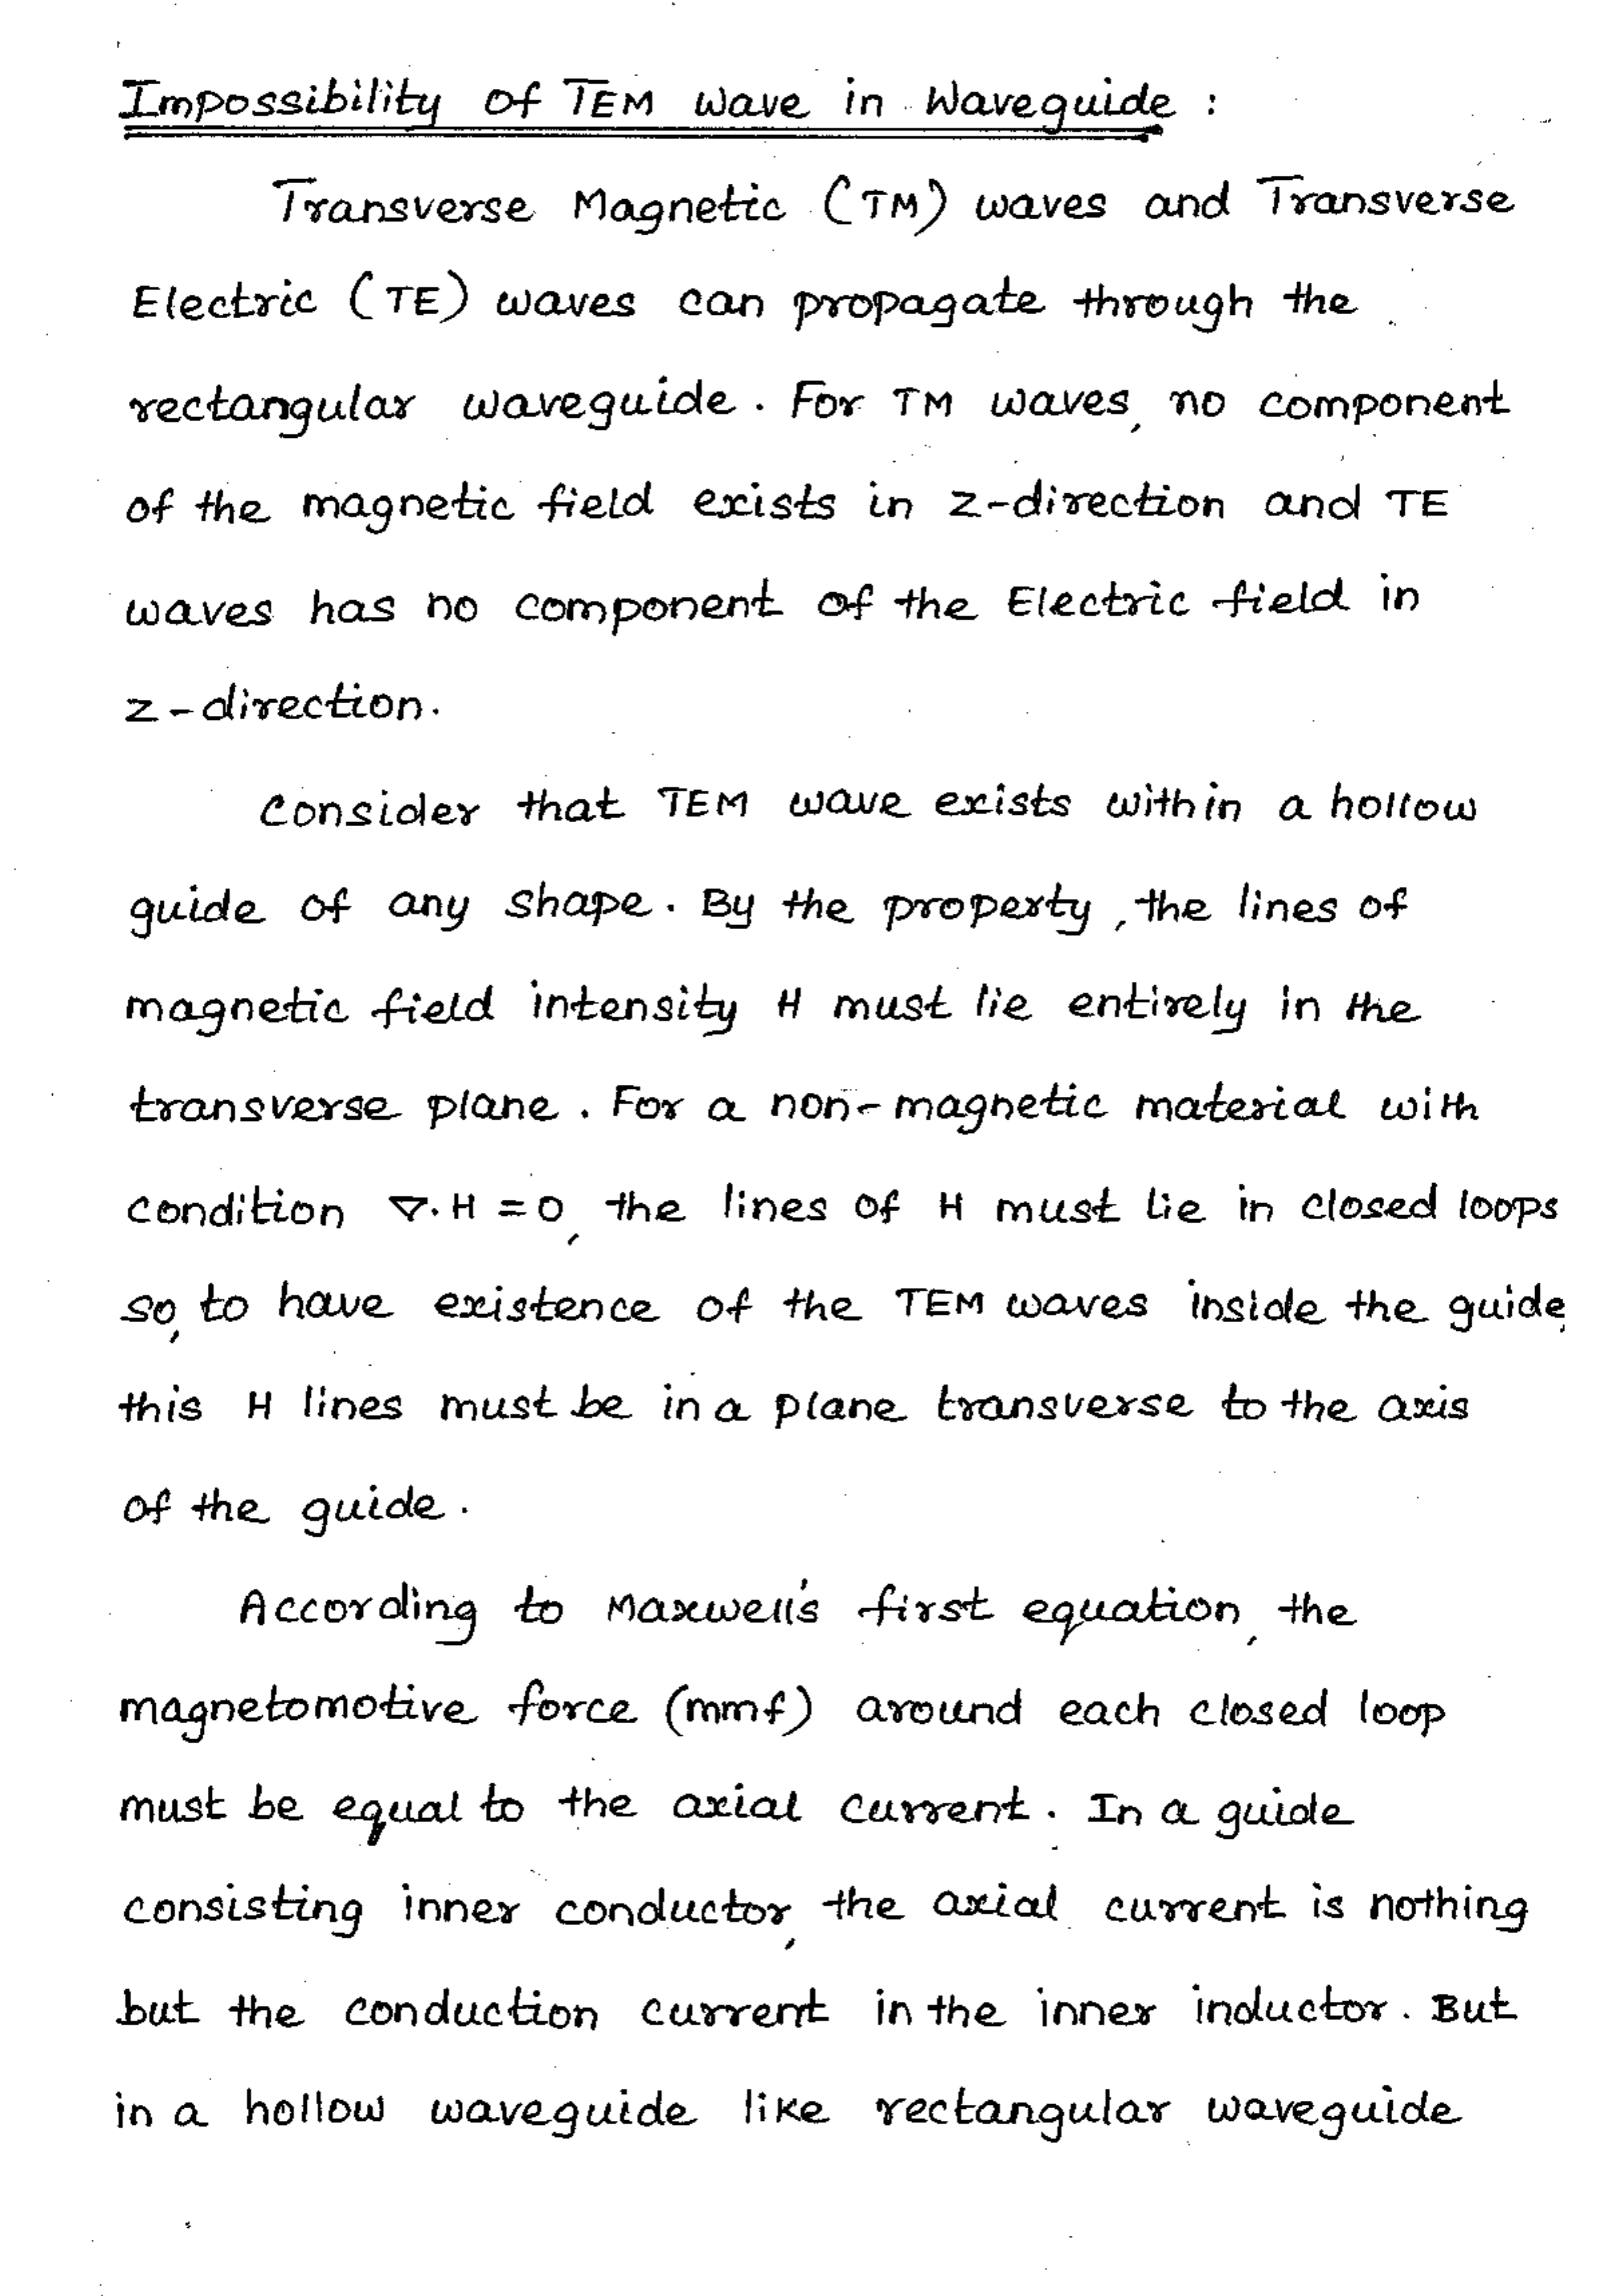 Impossibility of TEM wave in Waveguide :
Transverse Magnetic (TM) waves and Transverse
Electric (TE) waves can propagate through the
rectangular waveguide. For TM waves, no component
of the magnetic field exists in z-direction and TE
waves has no component of the Electric field in
z-direction.
Consider that TEM wave exists within a hollow
guide of any shape. By the property, the lines of
magnetic field intensity H must lie entirely in the
transverse plane. For a non-magnetic material with
condition ∇.H = 0, the lines of H must lie in closed loops
so, to have existence of the TEM waves inside the guide,
this H lines must be in a plane transverse to the axis
of the guide.
According to Maxwell's first equation, the
magnetomotive force (mmf) around each closed loop
must be equal to the axial current. In a guide
consisting inner conductor, the axial current is nothing
but the conduction current in the inner inductor. But
in a hollow waveguide like rectangular waveguide